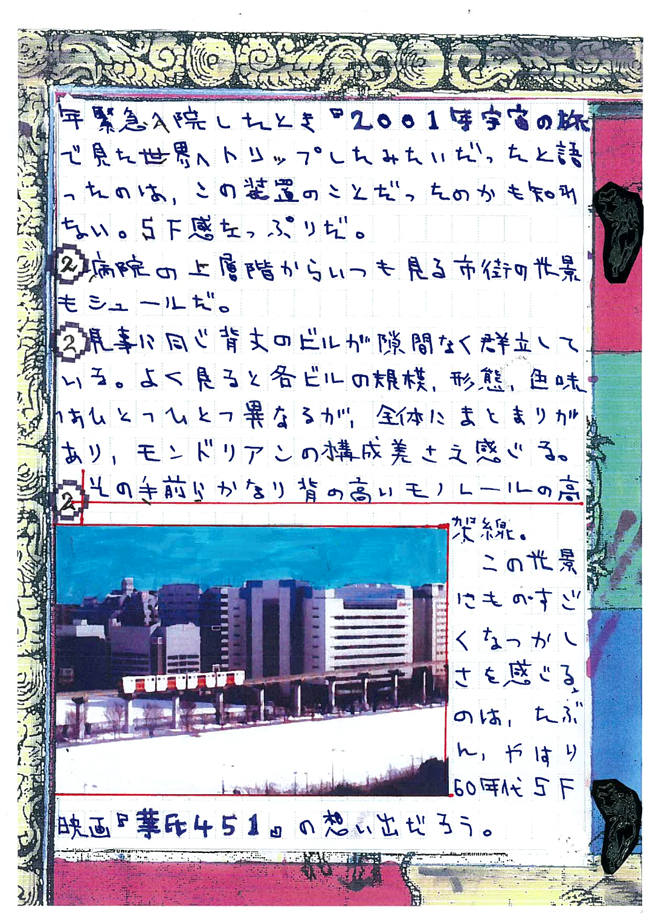 年緊急入院したとき『2001年宇宙の旅
で見た世界へトリップしたみたいだったと語
ったのは、この装置のことだったのかも知れ
ない。SF感たっぷりだ。
2 病院の上層階からいつも見る市街の世景
もシュールだ。
2 見事に同じ背丈のビルが隙間なく群立して
いる。よく見ると各ビルの規模、形態、色味
はひとつひとつ異なるが、全体にまとまりが
あり、モンドリアンの構成美さえ感じる。
2 その手前にかなり背の高いモノレールの高
架線。
この世景
にものすご
くなつかし
さを感じる
のは、たぶ
ん、やはり
60年代SF
映画『華氏451』の想い出だろう。